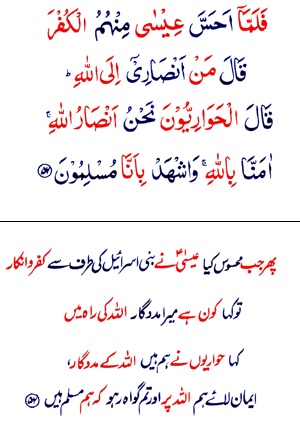 فَلَمَّاۤ اَحَسَّ عِیْسٰی مِنْهُمُ الْكُفْرَ
قَالَ مَنْ اَنْصَارِیْۤ اِلَی اللّٰهِ ؕ
قَالَ الْحَوَارِیُّوْنَ نَحْنُ اَنْصَارُ اللّٰهِ ۚ
اٰمَنَّا بِاللّٰهِ ۚ وَاشْهَدْ بِاَنَّا مُسْلِمُوْنَ ﴿۵۲﴾
پھر جب محسوس کیا عیسیٰؑ نے بنی اسرائیل کی طرف سے کفر و انکار
تو کہا کون ہے میرا مددگار اللہ کی راہ میں
کہا حواریوں نے ہم ہیں اللہ کے مددگار،
ایمان لائے ہم اللہ پر اور تم گواہ رہو کہ ہم مسلم ہیں ﴿۵۲﴾